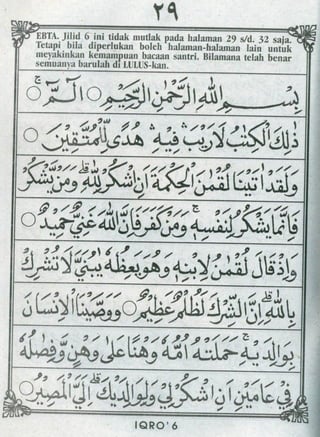 ٢٩
EBTA. Jilid 6 ini tidak mutlak pada halaman 29 s/d. 32 saja.
Tetapi bila diperlukan boleh halaman-halaman lain untuk
meyakinkan kemampuan bacaan santri. Bilamana telah benar
semuanya barulah di LULUS-kan.
بِسْمِ اللّٰهِ الرَّحْمٰنِ الرَّحِيْمِ ○ الٓمّٓ ۚ ○
ذٰلِكَ الْكِتٰبُ لَا رَيْبَ ۛ فِيْهِ ۛ هُدًى لِّلْمُتَّقِيْنَ ○
وَلَقَدْ اٰتَيْنَا لُقْمٰنَ الْحِكْمَةَ اَنِ اشْكُرْ لِلّٰهِ ۗ وَمَنْ يَّشْكُرْ
فَاِنَّمَا يَشْكُرُ لِنَفْسِهٖ ۚ وَمَنْ كَفَرَ فَاِنَّ اللّٰهَ غَنِيٌّ حَمِيْدٌ ○
وَاِذْ قَالَ لُقْمٰنُ لِابْنِهٖ وَهُوَ يَعِظُهٗ يٰبُنَيَّ لَا تُشْرِكْ
بِاللّٰهِ ۗ اِنَّ الشِّرْكَ لَظُلْمٌ عَظِيْمٌ ○ وَوَصَّيْنَا الْاِنْسَانَ
بِوَالِدَيْهِ ۚ حَمَلَتْهُ اُمُّهٗ وَهْنًا عَلٰى وَهْنٍ وَّفِصَالُهٗ
فِيْ عَامَيْنِ اَنِ اشْكُرْ لِيْ وَلِوَالِدَيْكَ ۗ اِلَيَّ الْمَصِيْرُ ○
IQRO' 6